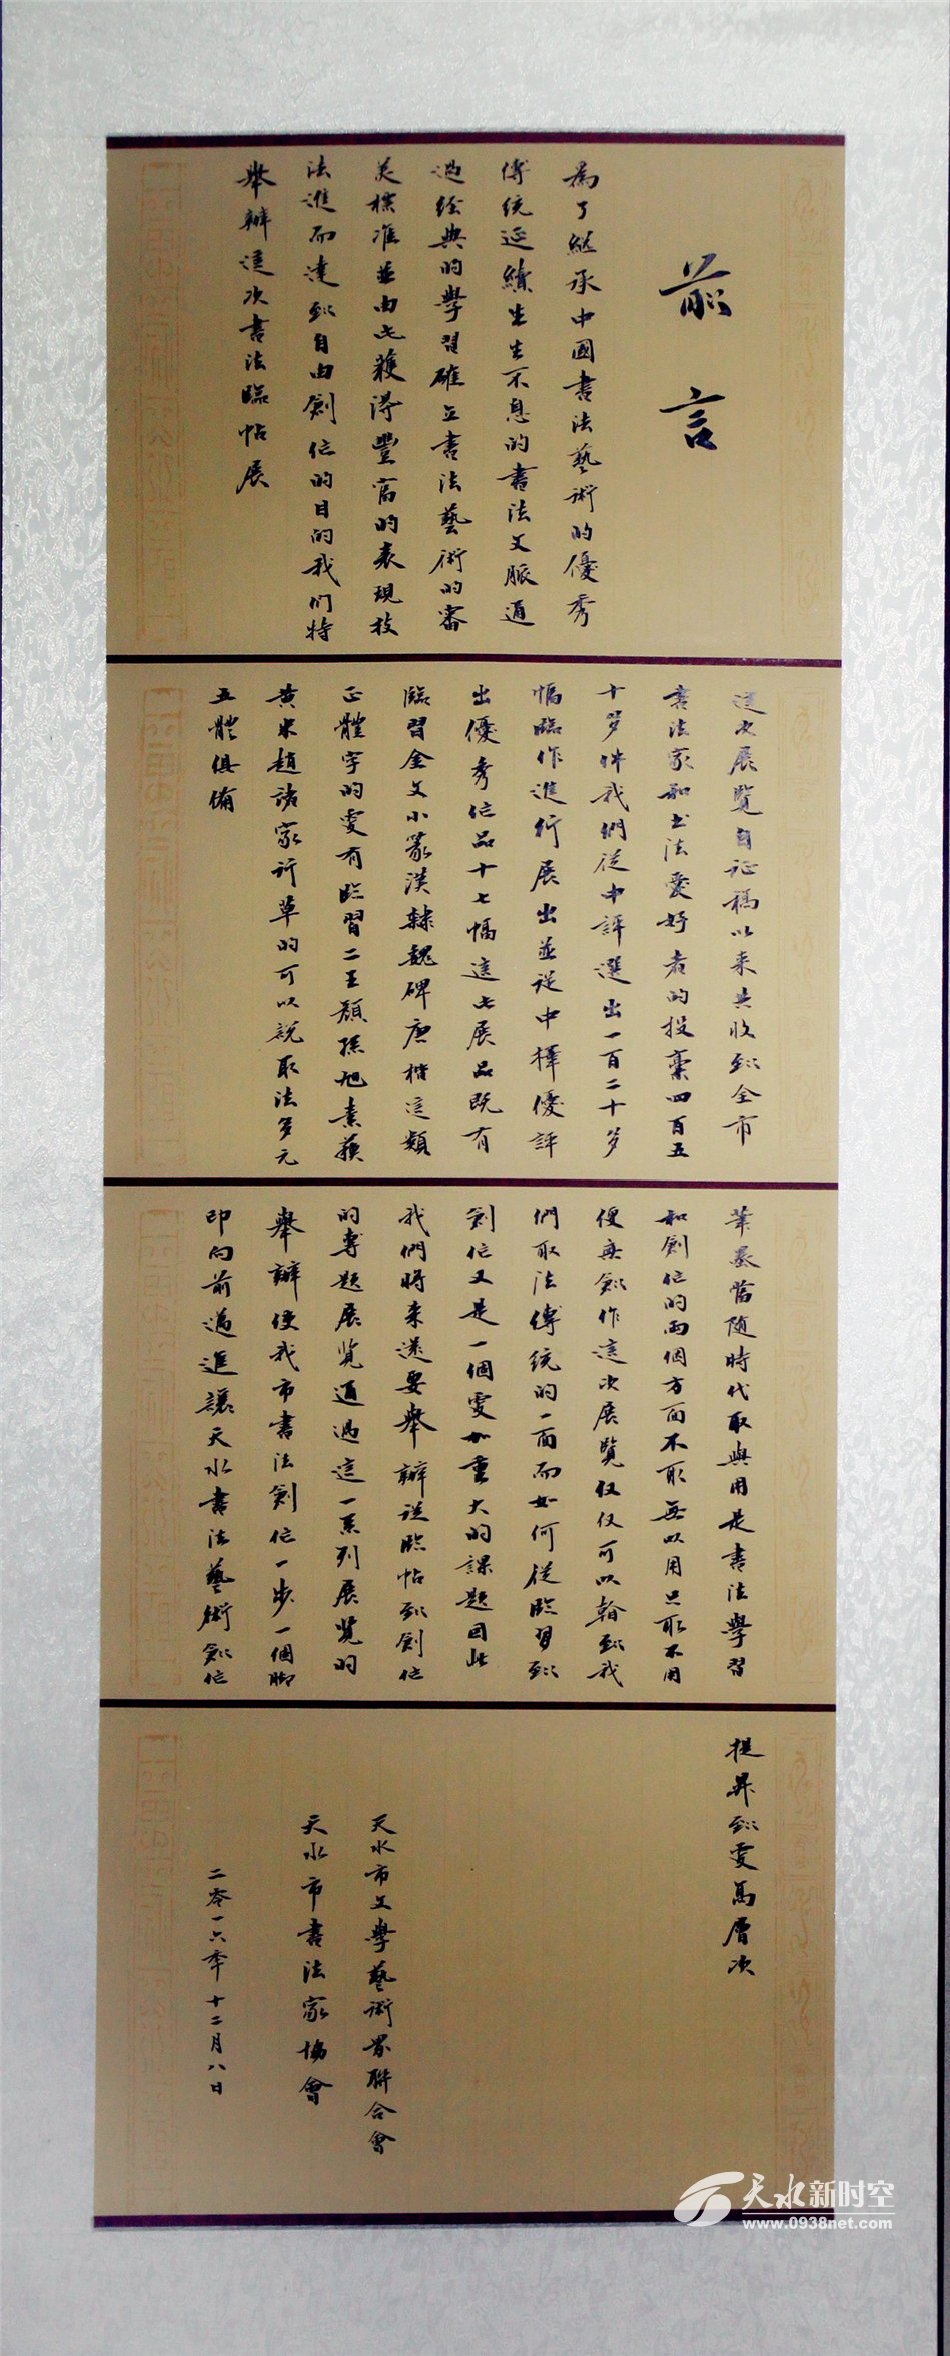 前言
為了繼承中國書法藝術的優秀
傳統延續生生不息的書法文脈通
過經典的學習確立書法藝術的審
美標準並由此獲得豐富的表現技
法進而達到自由創作的目的我們特
舉辦這次書法臨帖展
這次展覽自征稿以來共收到全市
書法家和书法愛好者的投稾四百五
十多件我們從中評選出一百二十多
幅臨作進行展出並從中擇優評
出優秀作品十七幅這些展品既有
臨習金文小篆漢隸魏碑唐楷這類
正體字的更有臨習二王顏孫旭素蘇
黄米趙諸家行草的可以説取法多元
五體俱備
筆墨當随時代取與用是書法學習
和創作的兩個方面不取無以用只取不用
便無創作這次展覽仅仅可以看到我
們取法傳統的一面而如何從臨習到
創作又是一個更加重大的課題因此
我們將来還要舉辦從臨帖到創作
的專題展览通過這一系列展览的
舉辦使我市書法創作一步一個脚
印向前邁進讓天水書法藝術創作
提昇到更高層次
天水市文學藝術界聯合會
天水市書法家協會
二零一六年十二月八日
天水新时空
www.0938net.com